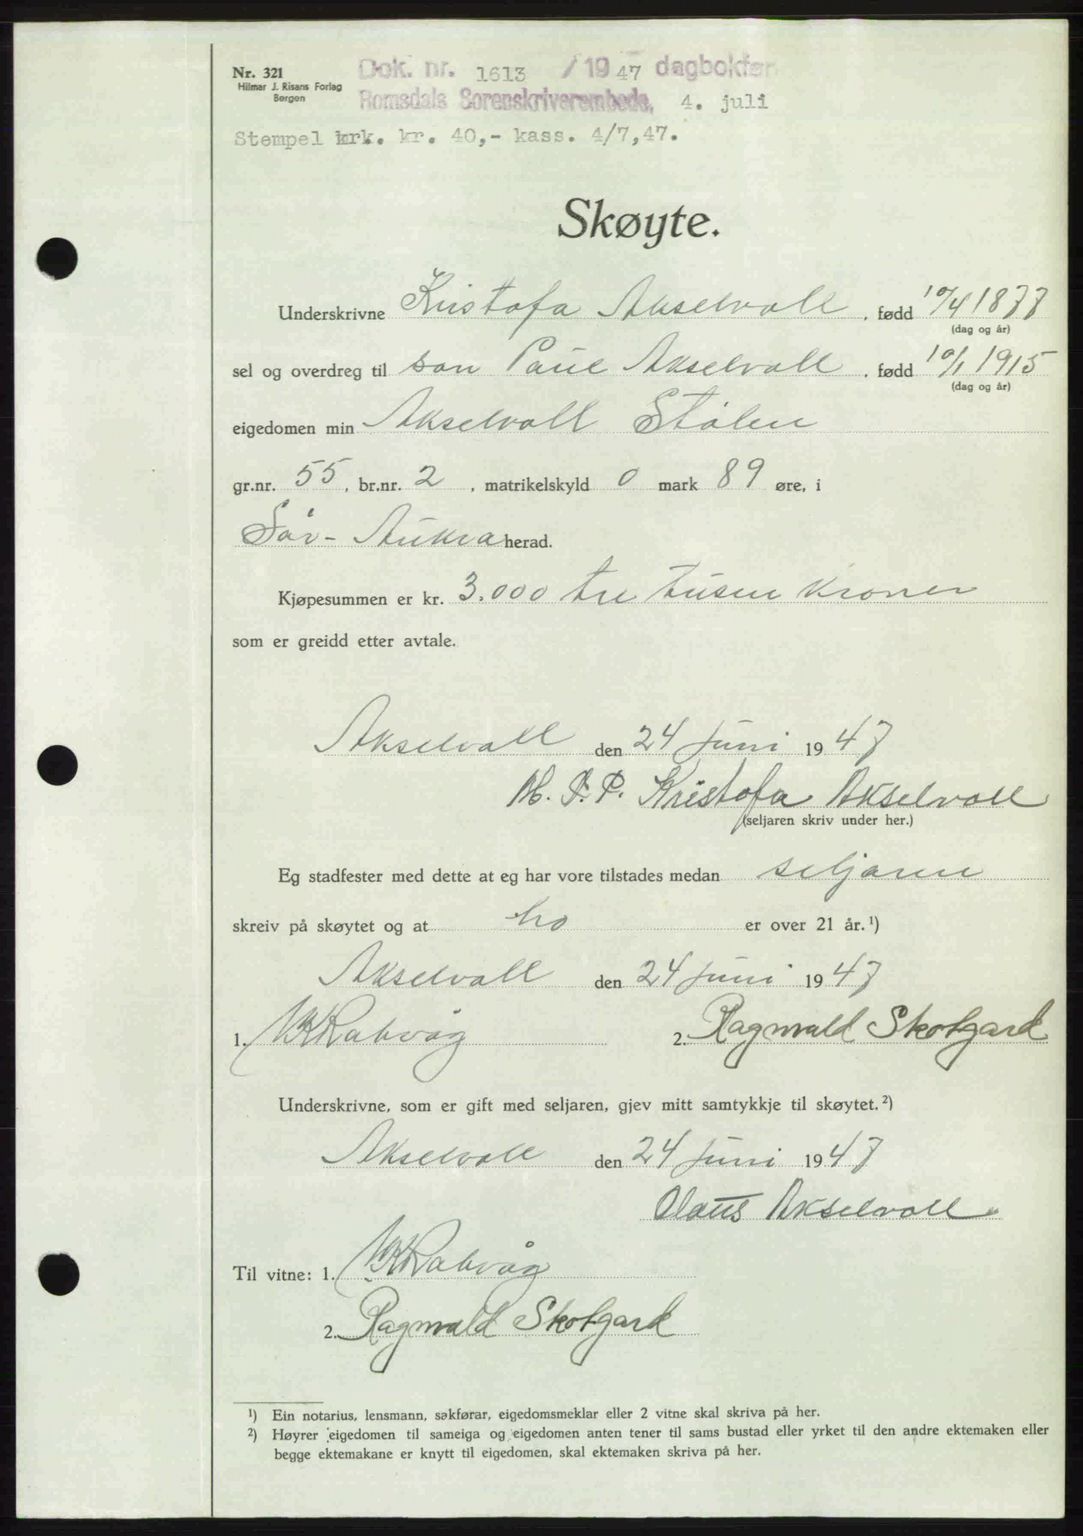 Nr. 321
Hilmar J. Risans Forlag
Bergen
Dok. nr. 1613 / 1947 dagbokfør
Romsdals Sorenskriverembede, 4. juli
Stempel krk. kr. 40,- kass. 4/7,47.
Skøyte.
Underskrivne Kristofa Akselvoll, fødd 10/4 1877
(dag og år)
sel og overdreg til son Paul Akselvoll, fødd 10/1 1915
(dag og år)
eigedomen min Akselvoll Stålen
gr.nr. 55, br.nr. 2, matrikelskyld 0 mark 89 øre, i
Sør-Aukra herad.
Kjøpesummen er kr. 3.000 tre tusen kroner
som er greidd etter avtale.
Akselvoll den 24 juni 1947
M. P. P. Kristofa Akselvoll
(seljaren skriv under her.)
Eg stadfester med dette at eg har vore tilstades medan seljaren
skreiv på skøytet og at ho er over 21 år.¹)
Akselvoll den 24 juni 1947
1. Rabvåg 2. Ragnvald Skotgard
Underskrivne, som er gift med seljaren, gjev mitt samtykkje til skøytet.²)
Akselvoll den 24 juni 1947
Olaus Akselvoll
Til vitne: 1. Rabvåg
2. Ragnvald Skotgard
¹) Ein notarius, lensmann, sakførar, eigedomsmeklar eller 2 vitne skal skriva på her.
²) Høyrer eigedomen til sameiga og eigedomen anten tener til sams bustad eller yrket til den andre ektemaken eller
begge ektemakane er knytt til eigedomen, skal ektemaken skriva på her.